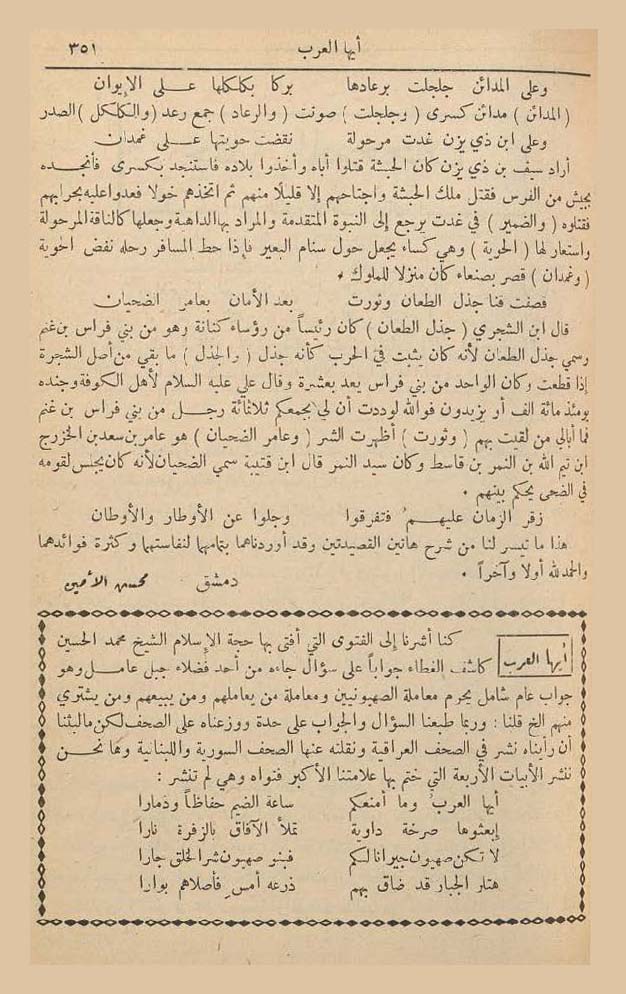 أيها العرب ٣٥١
وعلى المدائن جلجلت برعادها بركا بكلكلها عــلى الإيوان
( المدائن ) مدائن كسرى ( وجلجلت ) صوتت ( والرعاد ) جمع رعد ( والكلكل ) الصدر
وعلى ابن ذي يزن غدت مرحولة نقضت حويتها عــلى غمدان
أراد سيف بن ذي يزن كان الحبشة قتلوا أباه وأخذوا بلاده فاستنجد بكسرى فأنجــده
بجيش من الفرس فقتل ملك الحبشة واجتاحهم إلا قليلا منهم ثم اتخذهم خولا فعدوا عليه بحرابهم
فقتلوه ( والضمير ) في غدت يرجع إلى النبوة المتقدمة والمراد بها الداهية وجعلها كالناقة المرحولة
واستعار لها ( الحوية ) وهي كساء يجعل حول سنام البعير فإذا حط المسافر رحله نفض الحوية
( وغمدان ) قصر بصنعاء كان منزلا للملوك .
قصفت قنا جذل الطعان وثورت بعد الأمان بعامر الضحيان
قال ابن الشجري ( جذل الطعان ) كان رئيساً من رؤساء كنانة وهو من بني فراس بن غنم
رسمي جذل الطعان لأنه كان يثبت في الحرب كأنه جذل ( والجذل ) ما بقي من أصل الشجرة
إذا قطعت وكان الواحد من بني فراس يعد بعشرة وقال علي عليه السلام لأهل الكوفة وجنده
يومئذ مائة الف أو يزيدون فوالله لوددت أن لي بجمعكم ثلاثمائة رجــل من بني فراس بن غنم
فما أبالي من لقيت بهم ( وثورت ) أظهرت الشر ( وعامر الضحيان ) هو عامر بن سعد بن الخزرج
ابن تيم الله بن النمر بن قاسط وكان سيد النمر قال ابن قتيبة سمي الضحيان لأنه كان يجلس لقومه
في الضحى يحكم بينهم .
زقر الزمان عليهــم فتفرقوا وجلوا عن الأوطار والأوطان
هذا ما تيسر لنا من شرح هاتين القصيدتين وقد أوردناهما بتمامهما لنفاستهما وكثرة فوائدهما
والحمد لله أولا وآخراً .
دمشق محسن الأمين
أيها العرب كنا أشرنا إلى الفتوى التي أفتى بها حجة الإسلام الشيخ محمد الحسين
كاشف الغطاء جواباً على سؤال جاءه من أحد فضلاء جبل عامــل وهو
جواب عام شامل يحرم معاملة الصهيونيين ومعاملة من يعاملهم ومن يبيعهم ومن يشتري
منهم الخ قلنا : وربما طبعنا السؤال والجواب على حدة ووزعناه على الصحف لكن ما لبثنا
أن رأيناه نشر في الصحف العراقية ونقلته عنها الصحف السورية واللبنانية وها نحــن
ننشر الأبيات الأربعة التي ختم بها علامتنا الأكبر فتواه وهي لم تنشر :
أيها العرب وما أمنعكم ساعة الضيم حفاظاً وذمارا
إبعثوها صرخة داوية تملأ الآفاق بالزفرة نارا
لا تكن صهيون جيرانا لكم فبنو صهيون شر الخلق جارا
هتلر الجبار قد ضاق بهم ذرعه أمس فأصلاهم بوارا